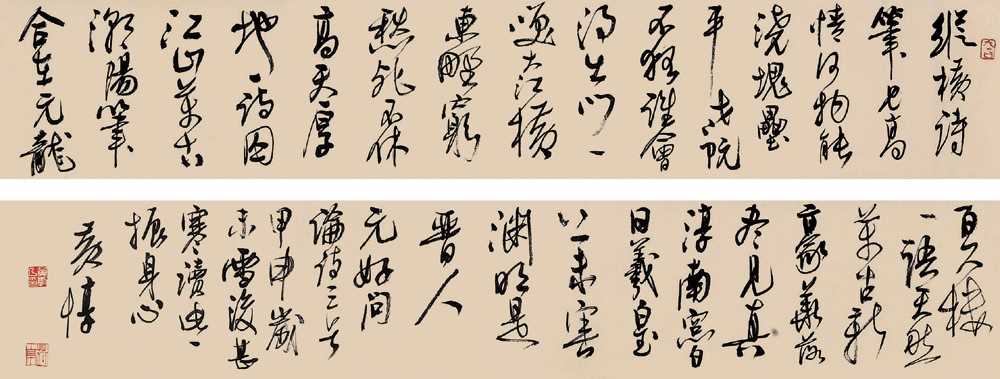 縱横詩
筆見高
情何物能
澆塊壘
平老阮
不狂誰會
得出門一
嘯大江横
東野窮
愁死不休
高天厚
地一詩囚
江山萬古
潮陽筆
合在元龍
百尺樓
一語天然
萬古新
豪華落
盡見真
淳南窗白
日羲皇
上未害
淵明是
晉人
元好問
論詩三首
甲申歲
末雪後甚
寒讀此一
振身心
黄惇